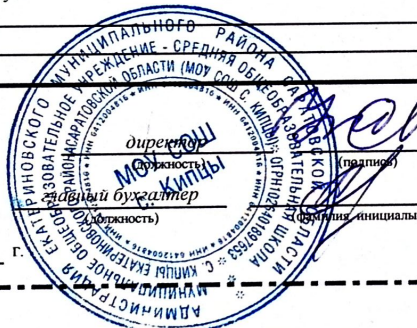 директор
(должность)
(подпись)
главный бухгалтер
(должность)
(фамилия, инициалы
г.
АДМИНИСТРАЦИЯ ЕКАТЕРИНОВСКОГО МУНИЦИПАЛЬНОГО РАЙОНА САРАТОВСКОЙ ОБЛАСТИ
МУНИЦИПАЛЬНОЕ ОБЩЕОБРАЗОВАТЕЛЬНОЕ УЧРЕЖДЕНИЕ - СРЕДНЯЯ ОБЩЕОБРАЗОВАТЕЛЬНАЯ ШКОЛА
С. КИПЦЫ ЕКАТЕРИНОВСКОГО РАЙОНА САРАТОВСКОЙ ОБЛАСТИ (МОУ СОШ С. КИПЦЫ) * ОГРН
* ИНН 6412004816 * ИНН 6412004816
МОУ СОШ
с. Кипцы